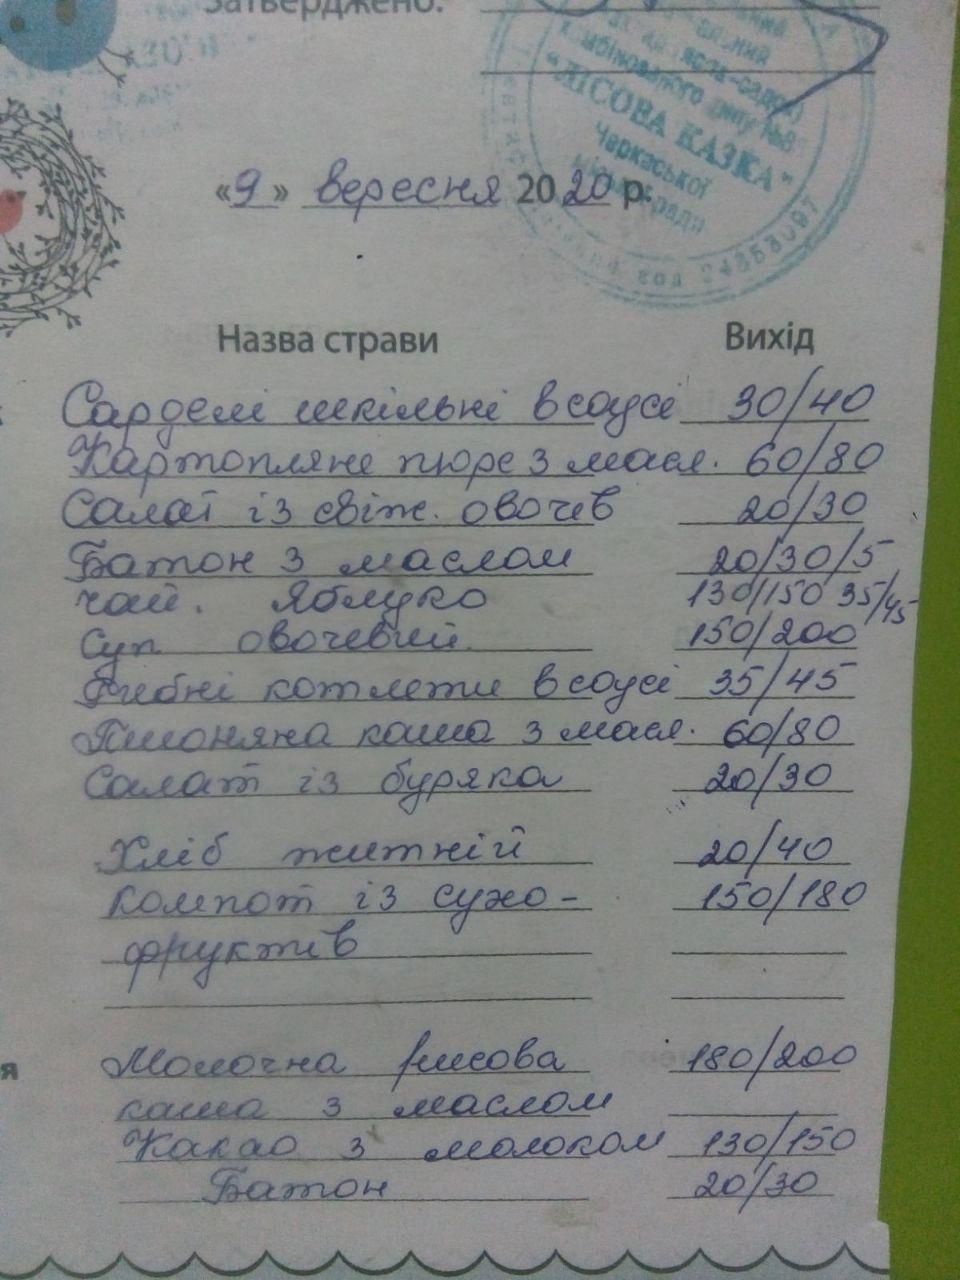 Затверджено:
комбінованого типу №8
"ЛІСОВА КАЗКА"
Черкаської
міської ради
код 24353097
«9» вересня 2020 р.
Назва страви Вихід
Сарделі шкільні в соусі 30/40
Картопляне пюре з масл. 60/80
Салат із свіж. овочев 20/30
Батон з маслом 20/30/5
чай. Яблуко 130/150 35/45
Суп овочевий. 150/200
Рибні котлети в соусі 35/45
Пшоняна каша з масл. 60/80
Салат із буряка 20/30
Хліб житній 20/40
компот із сухо- 150/180
фруктів
Молочна рисова 180/200
каша з маслом
Какао з молоком 130/150
Батон 20/30
я